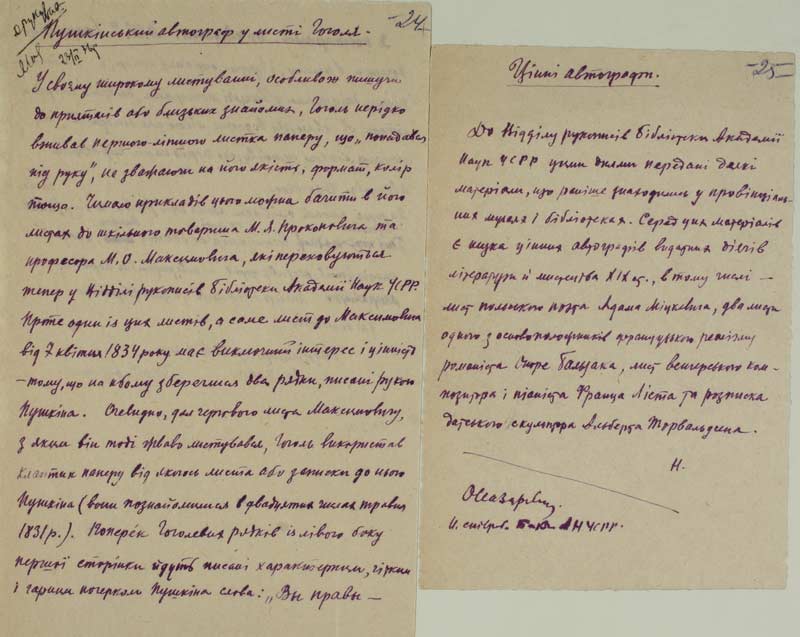 -24-
Пушкінський автограф у листі Гоголя.
У своєму широкому листуванні, особливо пишучи
до приятелів або близьких знайомих, Гоголь нерідко
вживав першого-ліпшого листка паперу, що „попадався
під руку", не зважаючи на його якість, формат, колір
тощо. Чимало прикладів цього можна бачити в його
листах до шкільного товариша М. Я. Прокоповича та
професора М. О. Максимовича, які переховуються
тепер у Відділі рукописів Бібліотеки Академії Наук УСРР.
Проте один із цих листів, а саме лист до Максимовича
від 7 квітня 1834 року має виключний інтерес і цінність
– тому, що на ньому збереглися два рядки, писані рукою
Пушкіна. Очевидно, для чергового листа Максимовичу,
з яким він тоді жваво листувався, Гоголь використав
клаптик паперу від якогось листа або записки до нього
Пушкіна (вони познайомилися в двадцятих числах травня
1831 р.). Поперек Гоголевих рядків із лівого боку
першої сторінки йдуть писані характерним, гарним
і почерком Пушкіна слова: „Вы правы –
-25-
Цінні автографи.
До Відділу рукописів Бібліотеки Академії
Наук УСРР цими днями передані деякі
матеріали, що раніше знаходились у провінціаль-
них музеях і бібліотеках. Серед цих матеріалів
є низка цінних автографів видатних діячів
літератури й мистецтва XIX ст., в тому числі –
лист польського поета Адама Міцкевича, два листи
одного з основоположників французького реалізму
романіста Оноре Бальзака, лист венгерського ком-
позитора і піаніста Франца Ліста та розписка
датського скульптора Альберта Торвальдсена.
Н.